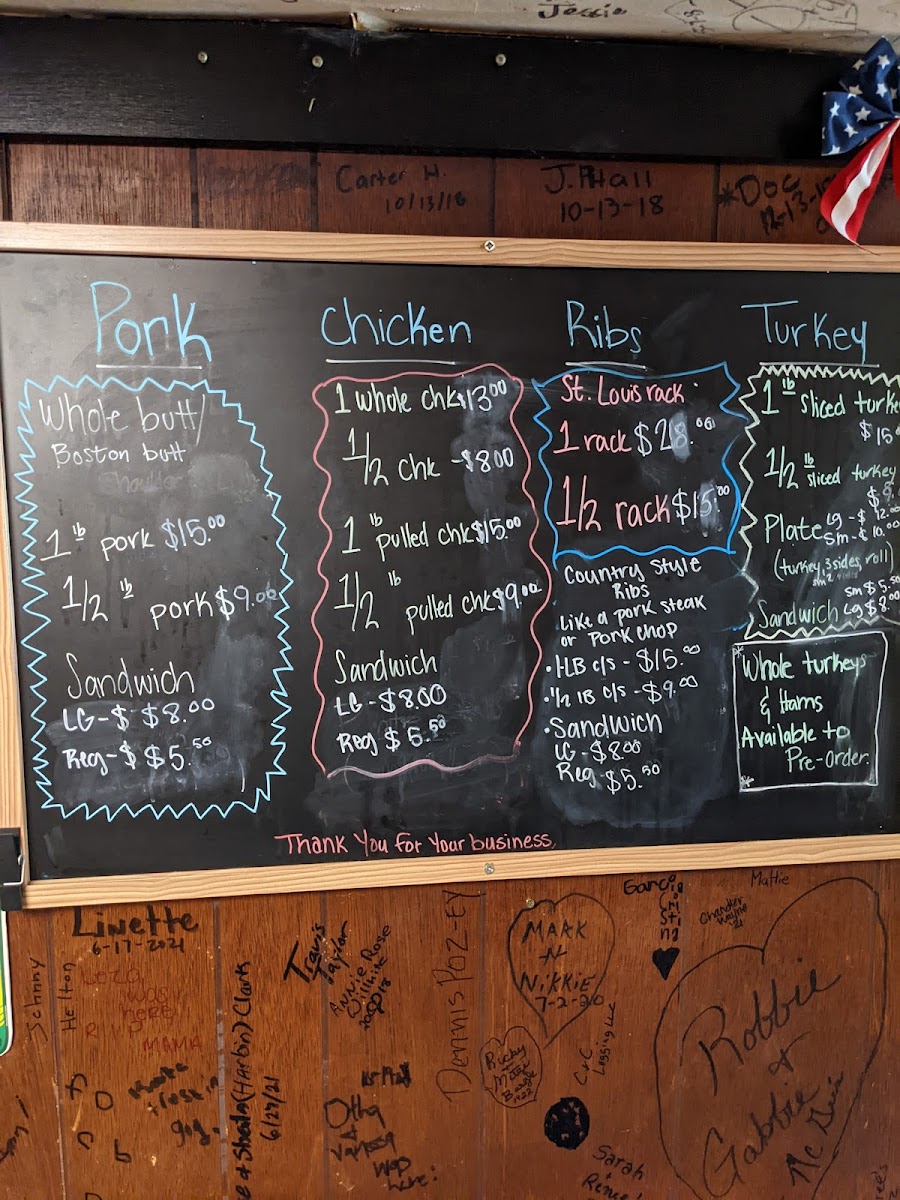 Jessie
Carter H.
10/13/18
J. Hall
10-13-18
*Doc
Pork
Whole butt/
Boston butt
1 lb pork $15.00
1/2 lb pork $9.00
Sandwich
LG-$ $8.00
Reg-$ $5.50
Chicken
1 whole chk $13.00
1/2 chk -$8.00
1 lb pulled chk $15.00
1/2 lb pulled chk $9.00
Sandwich
LG-$8.00
Reg $5.50
Ribs
St. Louis rack
1 rack $28.00
1/2 rack $15.00
Country Style
Ribs
• Like a pork steak
or pork chop
• 1 LB c/s - $15.00
• 1/2 lB c/s - $9.00
• Sandwich
LG-$8.00
Reg-$5.50
Turkey
1 lb sliced turke
$15
1/2 lb sliced turkey
$9.
Plate Lg - $12.00
Sm - $10.00
(turkey, 3 sides, roll)
sm 2
Sandwich sm $5.50
Lg $8.00
* Whole turkeys
& Hams
Available to
* Pre-Order.
Thank You for Your business.
Linette
6-17-2021
Johnny
Helton
was
here
RIP
MAMA
& Sheila (Harbin) Clark
6/27/21
Travis
Taylor
Annie Rose
Willhite
Dennis Poz-Ey
MARK
N
NiKKiE
7-2-20
Ricky
Garcia
Cristina
Mattie
Chandler
Wayne
21
CrC
Robbie
+
Gabbie
Otha
Vanessa
Was
here!
Sarah
+
Renee